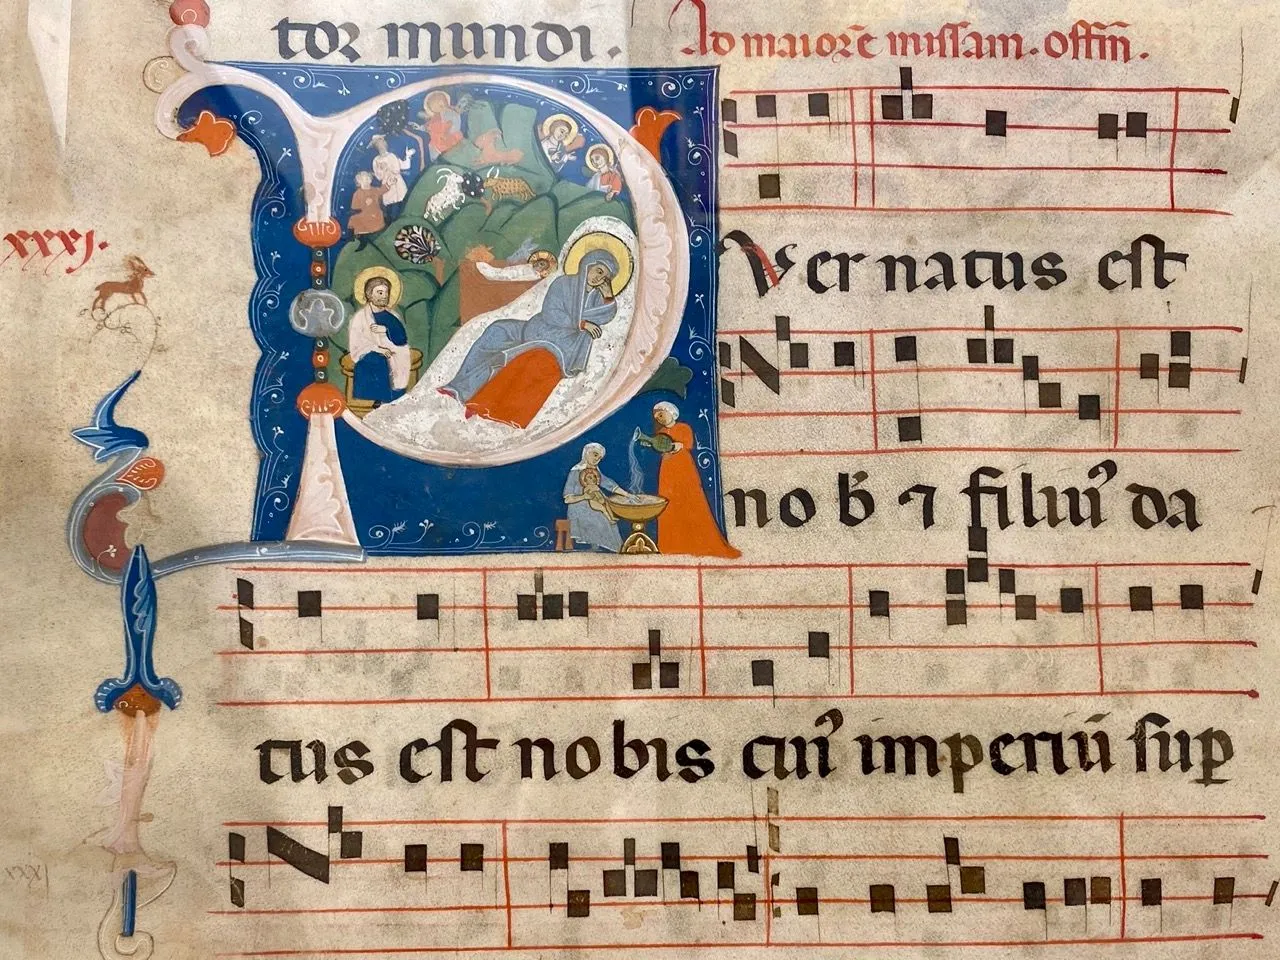 tor mundi. Ad maiorē missam. offm̄.
xxxj.
P
Ver natus est
no b̄ ⁊ filiu᷒ da
tus est nobis cui᷒ imperiū sup̱
xxxi